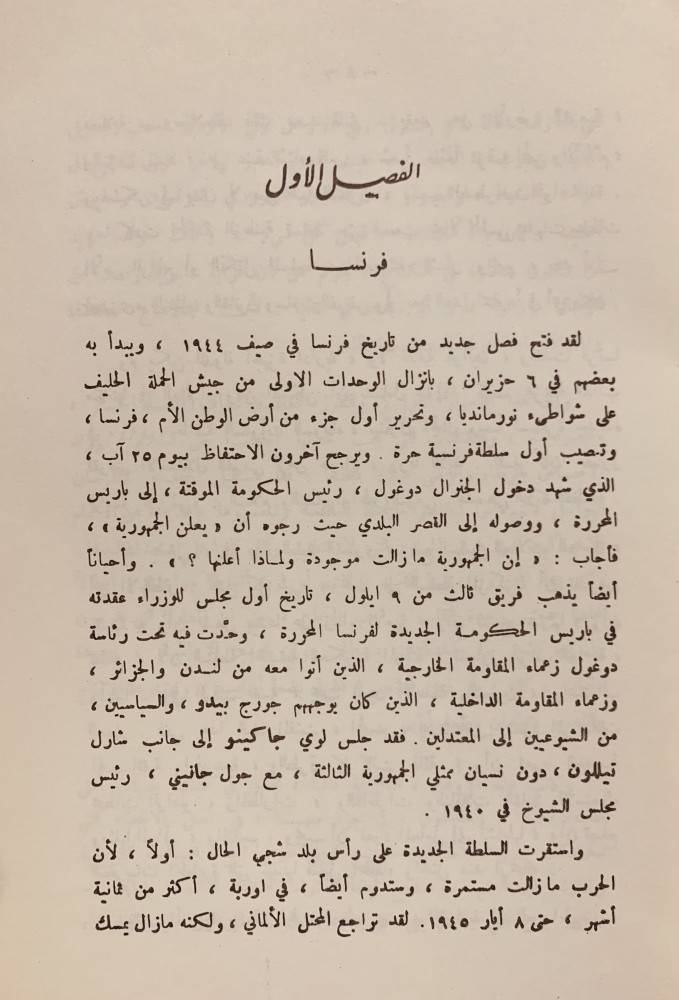 الفصل الأول
فرنسا
لقد فتح فصل جديد من تاريخ فرنسا في صيف ١٩٤٤ ، ويبدأ به
بعضهم في ٦ حزيران ، بانزال الوحدات الاولى من جيش الحملة الحليف
على شواطىء نورمانديا ، وتحرير أول جزء من أرض الوطن الأم ، فرنسا ،
وتنصيب أول سلطة فرنسية حرة . ويرجح آخرون الاحتفاظ بيوم ٢٥ آب ،
الذي شهد دخول الجنرال دوغول ، رئيس الحكومة الموقتة ، إلى باريس
المحررة ، ووصوله إلى القصر البلدي حيث رجوه أن « يعلن الجمهورية » ،
فأجاب : « إن الجمهورية مازالت موجودة ولماذا أعلنها ؟ » . وأحياناً
أيضاً يذهب فريق ثالث من ٩ ايلول ، تاريخ أول مجلس للوزراء عقدته
في باريس الحكومة الجديدة لفرنسا المحررة ، وحدّت فيه تحت رئاسة
دوغول زعماء المقاومة الخارجية ، الذين أتوا معه من لندن والجزائر ،
وزعماء المقاومة الداخلية ، الذين كان يوجههم جورج بيدو ، والسياسيين ،
من الشيوعيين إلى المعتدلين . فقد جلس لوي جاكينو إلى جانب شارل
تيللون ، دون نسيان ممثلي الجمهورية الثالثة ، مع جول جانيني ، رئيس
مجلس الشيوخ في ١٩٤٠ .
واستقرت السلطة الجديدة على رأس بلد شجي الحال : أولاً ، لأن
الحرب مازالت مستمرة ، وستدوم أيضاً ، في اوربة ، أكثر من ثمانية
أشهر ، حتى ٨ أيار ١٩٤٥. لقد تراجع المحتل الألماني ، ولكنه مازال يمسك